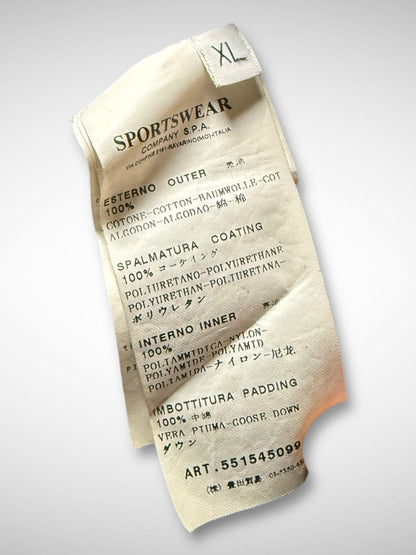 XL
SPORTSWEAR
COMPANY S.P.A.
VIA CONFINE 2161-RAVARINO(MO)-ITALIA
ESTERNO OUTER 表地
100%
COTONE-COTTON-BAUMWOLLE-COT
ALGODON-ALGODAO-綿-棉
SPALMATURA COATING
100% コーティング
POLIURETANO-POLYURETHANE
POLYURETHAN-POLIURETANA-
ポリウレタン
INTERNO INNER 裏地
100%
POLIAMMIDICA-NYLON-
POLYAMIDE-POLYAMID
POLIAMIDA-ナイロン-尼龙
IMBOTTITURA PADDING
100% 中綿
VERA PIUMA-GOOSE DOWN
ダウン
ART.551545099
(株) 豊田貿易